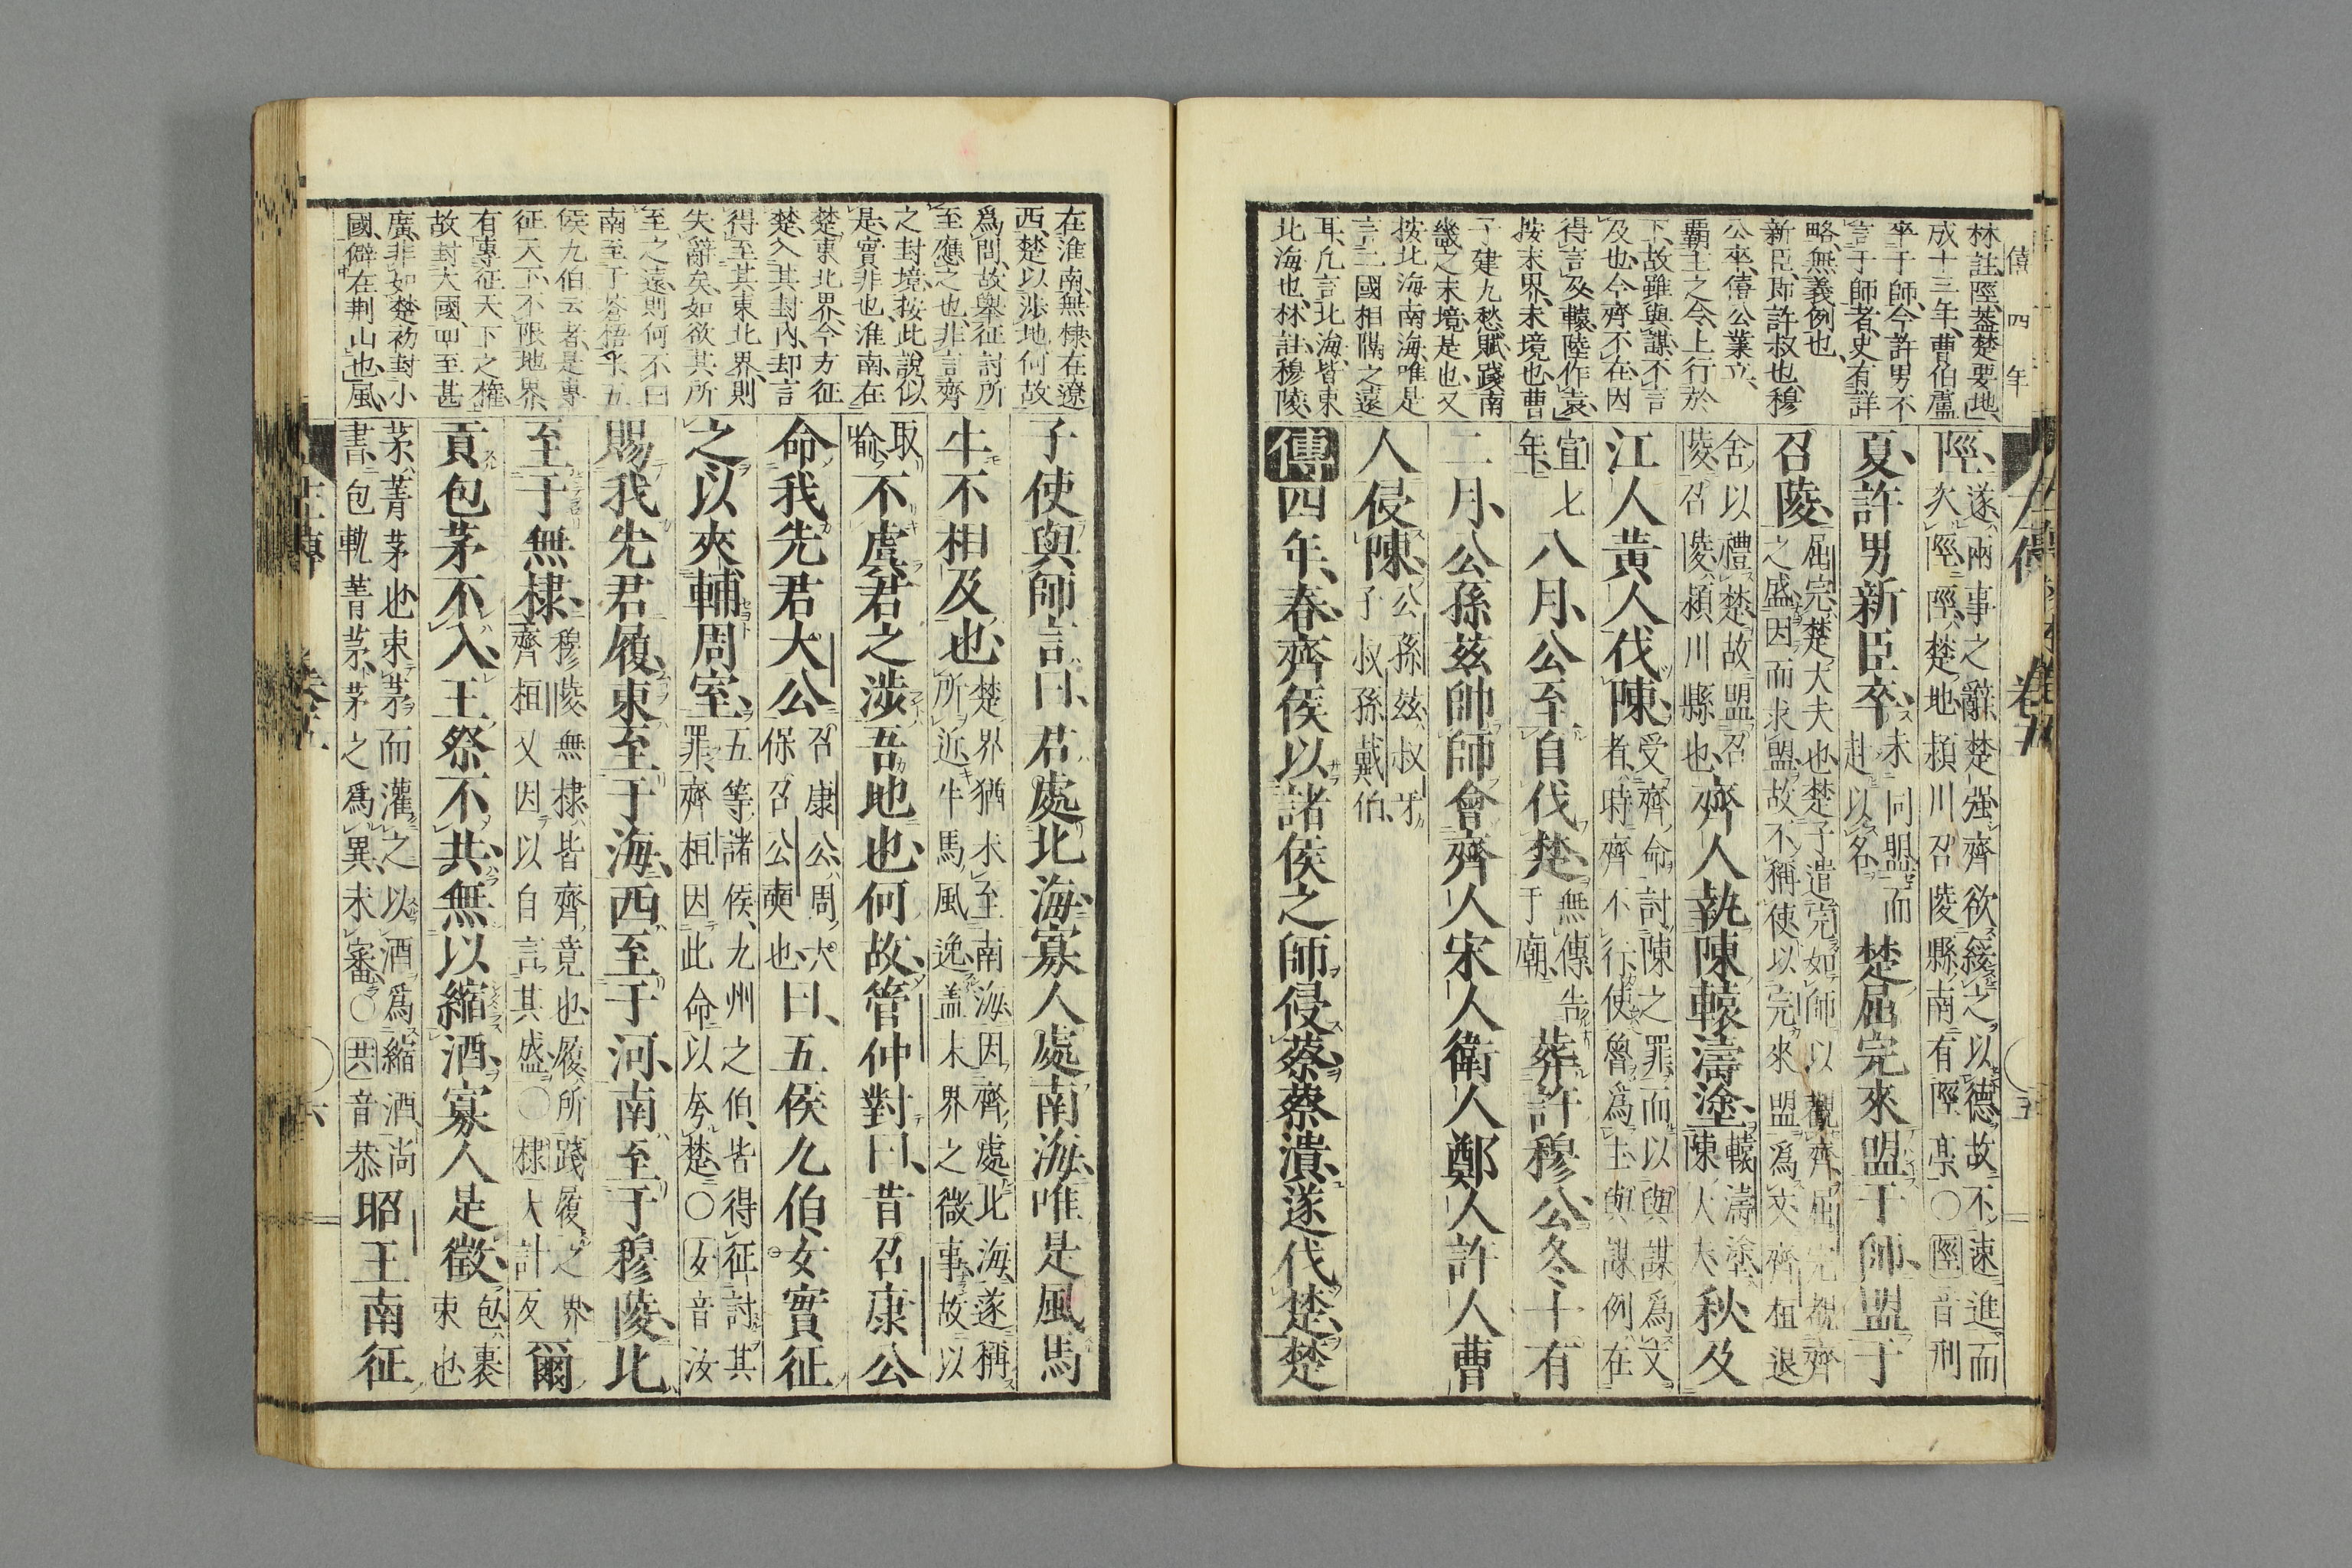 僖四年
林註陘蓋楚要地
成十三年曹伯盧
卒于師今許男不
言于師者史有詳
略無義例也
新臣即許叔也穆
公卒僖公業立
覇主之令上行於
下故雖與謀不言
及也今齊不在因
得言及轅陸作袁
按末界末境也曹
子建九愁賦踐南
畿之末境是也又
按北海南海唯是
言二國相隔之遠
耳凡言北海皆東
北海也林註穆陵
陘遂兩事之辭楚强齊欲綏之以德故不速進而
次陘陘楚地頴川召陵縣南有陘亭○陘音刑
夏許男新臣卒未同盟而赴以名楚屈完來盟于師盟于
召陵屈完楚大夫也楚子遣完如師以觀齊屈完覩齊
之盛因而求盟故不稱使以完來盟爲文齊桓退
舍以禮楚故盟召
陵召陵頴川縣也齊人執陳轅濤塗轅濤塗陳大夫秋及
江人黄人伐陳受齊命討陳之罪而以與謀爲文
者時齊不行使魯爲主與謀例在
宣七年八月公至自伐楚無傳告于廟葬許穆公冬十有
二月公孫玆帥師會齊人宋人衛人鄭人許人曹
人侵陳公孫玆叔牙子叔孫戴伯
傳四年春齊侯以諸侯之師侵蔡蔡潰遂伐楚楚
左傳
卷五
五
在淮南無棣在遼
西楚以渉地何故
爲問故舉征討所
至應之也非言齊
之封境按此說似
是實非也淮南在
楚東北界今方征
楚入其封内却言
得至其東北界則
失辭矣如欲其所
至之遠則何不曰
南至于蒼梧乎五
侯九伯云者是專
征天下不限地界
有專征天下之權
故封大國四至甚
廣非如楚初封小
國僻在荆山也風
子使與師言曰君處北海寡人處南海唯是風馬
牛不相及也楚界猶未至南海因齊處北海遂稱
所近牛馬風逸蓋末界之微事故以
取喻不虞君之涉吾地也何故管仲對曰昔召康公
命我先君大公召康公周大保召公奭也曰五侯九伯女實征
之以夾輔周室五等諸侯九州之伯皆得征討其
罪齊桓因此命以夸楚○女音汝
賜我先君履東至于海西至于河南至于穆陵北
至于無棣穆陵無棣皆齊竟也履所踐履之界
齊桓又因以自言其盛○棣大計反爾
貢包茅不入王祭不共無以縮酒寡人是徵包裹束也
茅菁茅也束茅而灌之以酒爲縮酒尚
書包軌菁茅茅之爲異未審○共音恭昭王南征
左傳
卷五
六